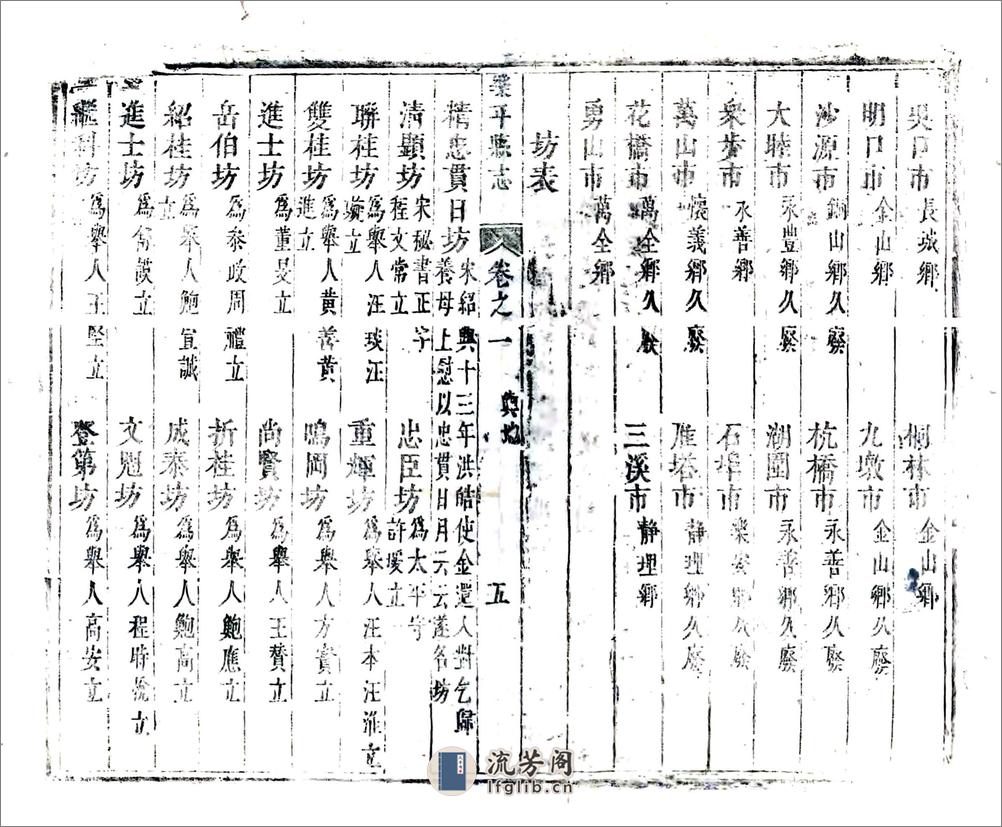 吳口市 長城鄉 桐林市 金山鄉
明口市 金山鄉 九墩市 金山鄉久廢
沙源市 銅山鄉久廢 杭橋市 永善鄉久廢
大睦市 永豐鄉久廢 湖園市 永善鄉久廢
眾步市 永善鄉 石埠市 樂安鄉久廢
萬山市 懷義鄉久廢 雁塔市 靜理鄉久廢
花橋市 萬全鄉久廢 三溪市 靜理鄉
勇山市 萬全鄉
坊表
樂平縣志 卷之一 輿地 五
精忠貫日坊 宋紹興十三年洪皓使金還入對乞歸養母上慰以忠貫日月云云遂名坊
清顯坊 宋秘書正字程文常立 忠臣坊 為太平守許瑗立
聯桂坊 為舉人汪琰汪立 重輝坊 為舉人汪本汪淮立
雙桂坊 為舉人黃善黃進立 鳴岡坊 為舉人方實立
進士坊 為董旻立 尚賢坊 為舉人王贊立
岳伯坊 為泰政周禮立 折桂坊 為舉人鮑應立
紹桂坊 為舉人鮑宣誠立 成泰坊 為舉人鮑高立
進士坊 為立 文魁坊 為舉人程時立
繼科坊 為舉人王堅立 登第坊 為舉人高安立
流芳阁
lfglib.cn